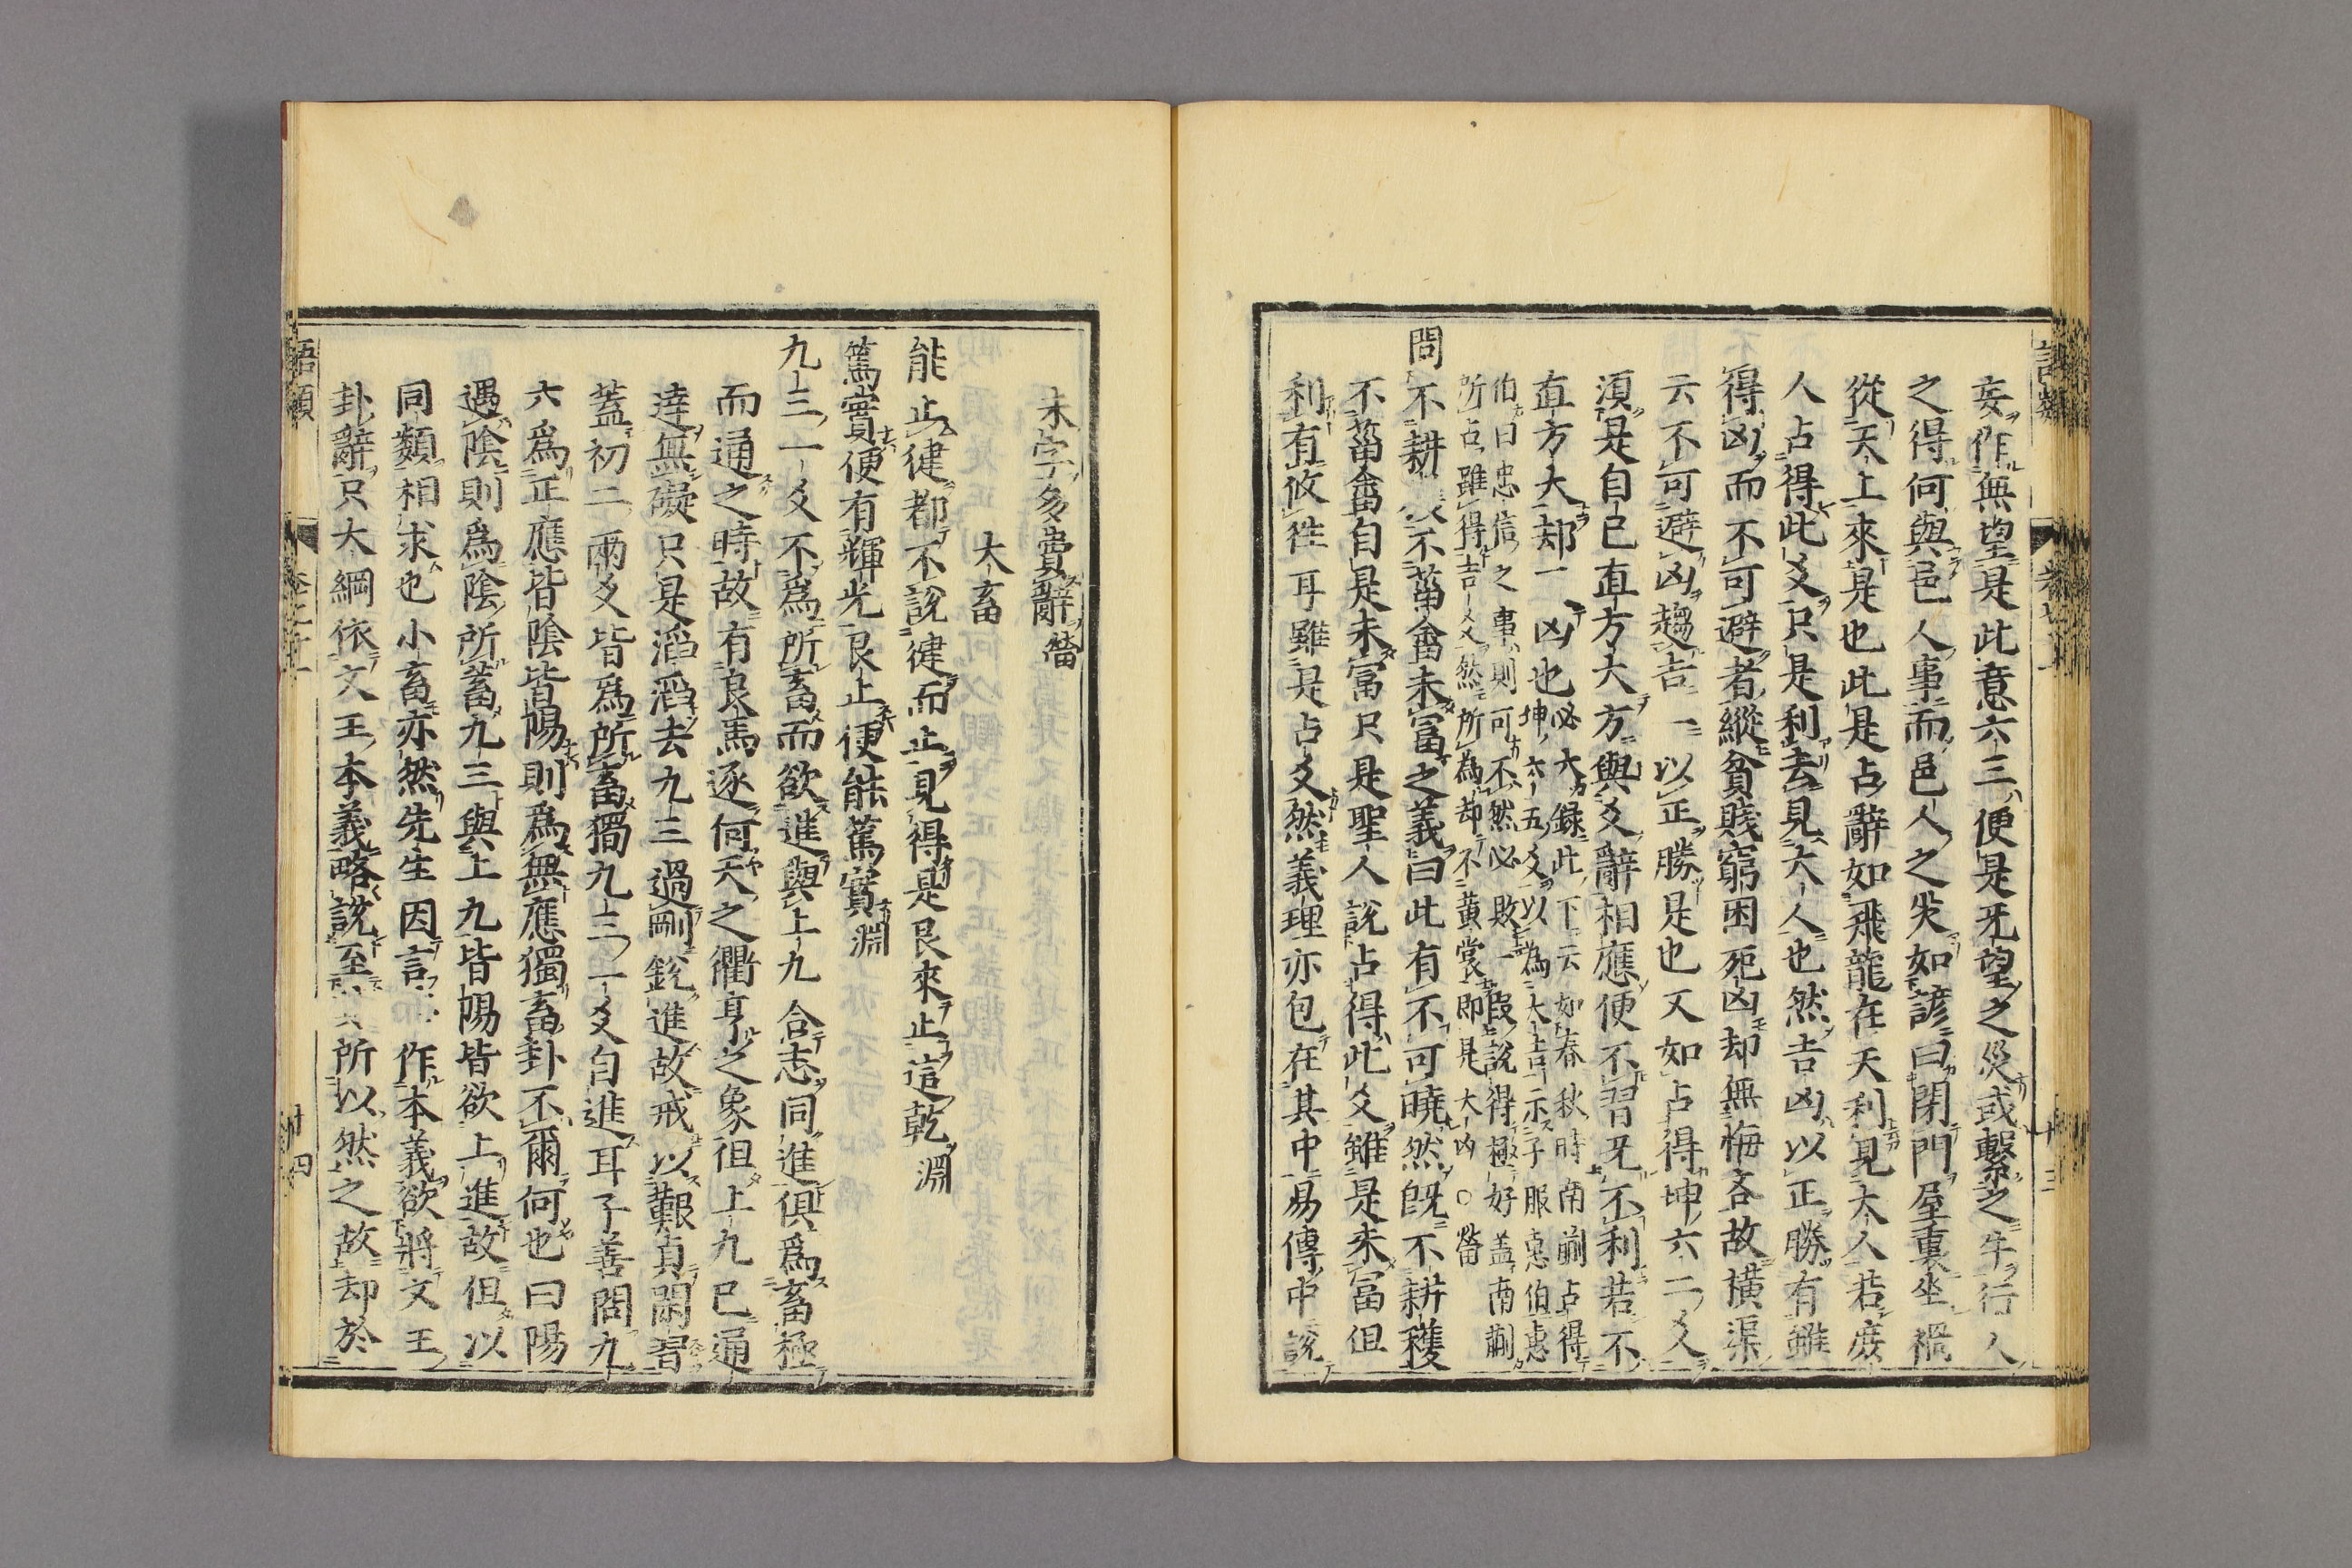 妄作無望是此意六三便是旡望之災或繫之牛行人
之得何與邑人事而邑人之失如諺曰閉門屋裏坐禍
從天上來是也此是占辭如飛龍在天利見大人若庶
人占得此爻只是利去見大人也然吉凶以正勝有雖
得凶而不可避者縱貧賤窮困死凶却無悔吝故橫渠
云不可避凶趨吉一以正勝是也又如占得坤六二爻
須是自己直方大方與爻辭相應便不習旡不利若不
直方大却一凶也必大録此下云如春秋時南蒯占得
坤六五爻以為大吉示子服惠伯惠
伯曰忠信之事則可不然必敗一叚說得極好蓋南蒯
所占雖得吉爻然所為却不黃裳即是大凶○㽦
問不耕 不菑畬未富之義曰此有不可曉然既不耕穫
不菑畬自是未富只是聖人說占得此爻雖是未富但
利有攸往耳雖是占爻然義理亦包在其中易傳中說
語類
十三
未字多費辭㽦
大畜
能止健都不說健而止見得是艮來止這乾淵
篤實便有輝光艮止便能篤實淵
九三一爻不爲所畜而欲進與上九合志同進俱爲畜極
而通之時故有良馬逐何天之衢亨之象但上九已通
達無礙只是滔滔去九三過剛銳進故戒以艱貞閑習
蓋初二兩爻皆爲所畜獨九三一爻自進耳子善問九
六爲正應皆陰皆陽則爲無應獨畜卦不爾何也曰陽
遇陰則爲陰所蓄九三與上九皆陽皆欲上進故但以
同類相求也小畜亦然先生因言 作本義欲將文王
卦辭只大綱依文王本義略說至 所以然之故却於
語類
十四